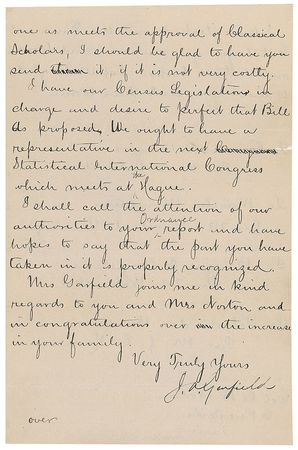 one as meets the approval of Classical
Scholars, I should be glad to have you
send it, if it is not very costly.
I have our Census Legislation in
charge and desire to perfect that Bill
as proposed. We ought to have a
representative in the next
Statistical International Congress
which meets at the Hague.
I shall call the attention of our
Ordnance
authorities to your report and have
hopes to say that the part you have
taken in it is properly recognized.
Mrs Garfield joins me in kind
regards to you and Mrs Norton and
in congratulations over the increase
in your family.
Very Truly Yours
J. A. Garfield
over